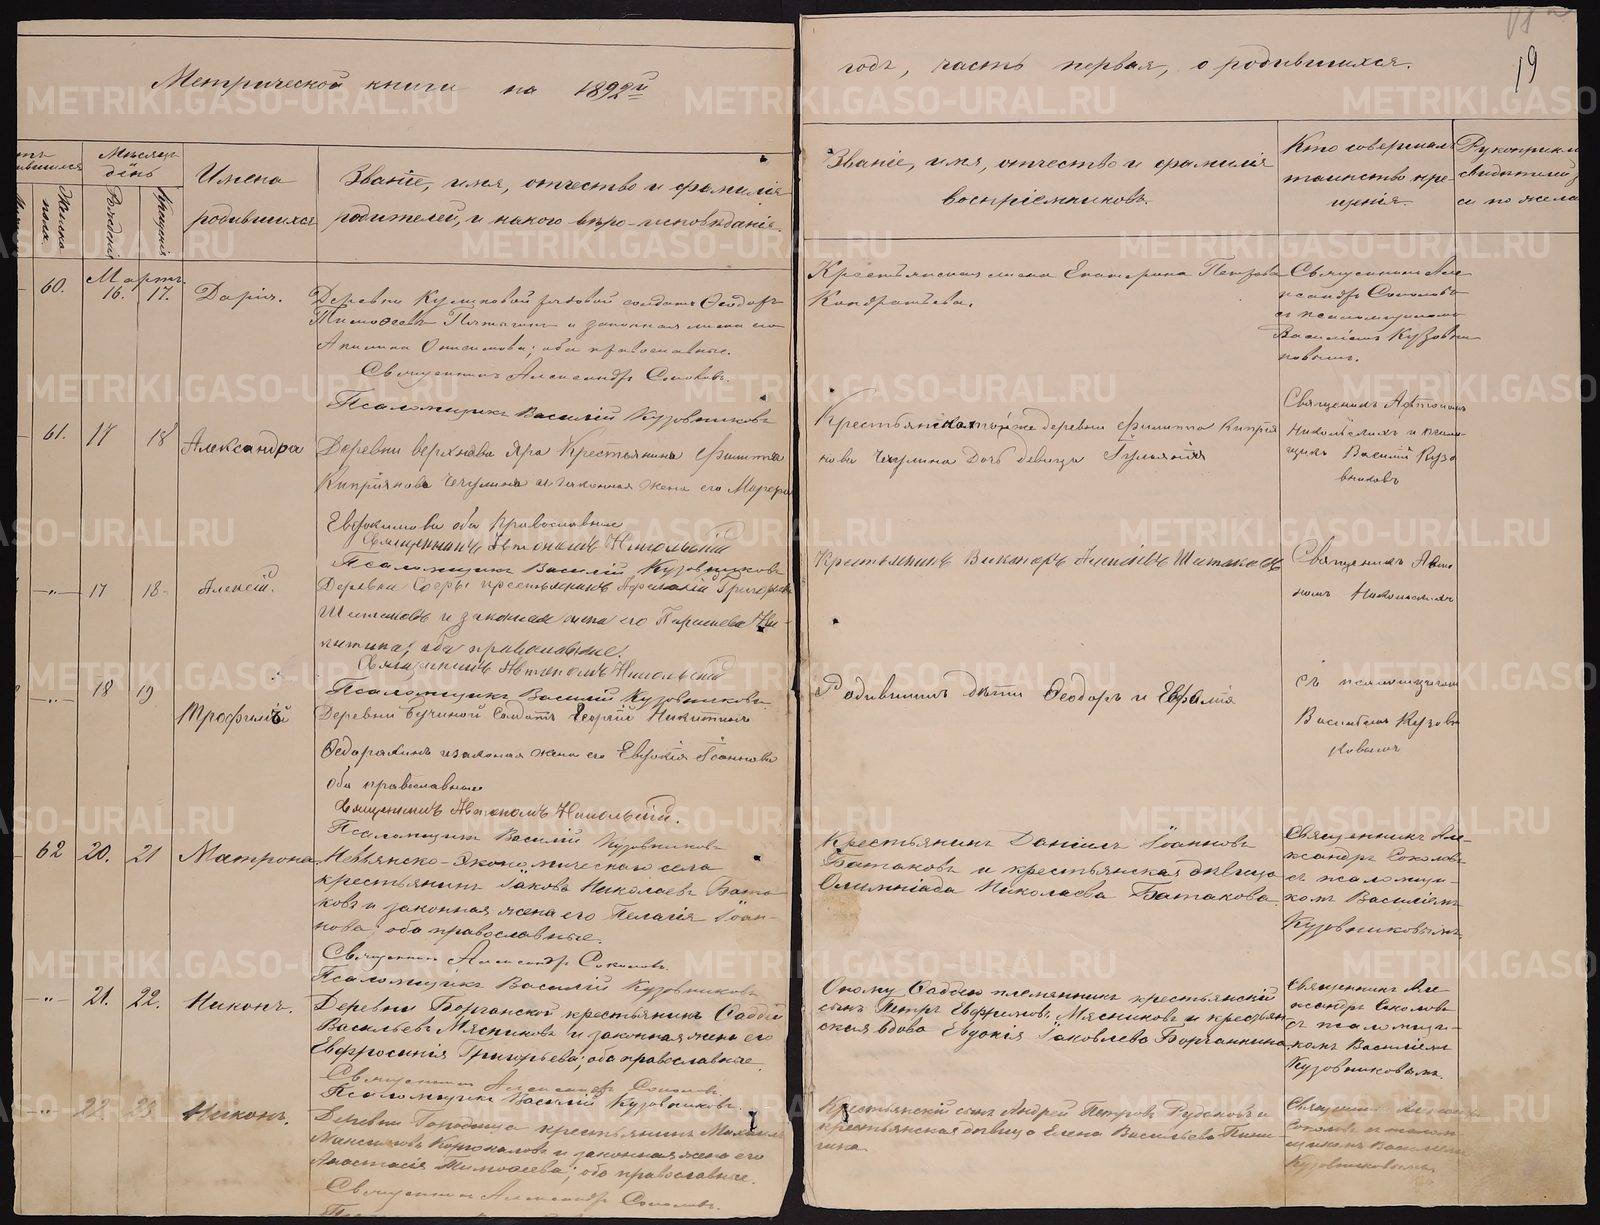 Метрической книги на 1892й
годъ, часть первая, о родившихся.
19
Мѣсяцъ
день
Женска
пола.
Рожденія
Крещенія
Имена
родившихся
Званіе, имя, отчество и фамилія
родителей, и какого вѣро-исповѣданія.
Званіе, имя, отчество и фамилія
воспріемниковъ.
Кто совершалъ
таинство кре-
щенія.
Рукоприкл
свидѣтелей
си по жела
Мартъ.
60. 16. 17. Дарія.
Деревни Куликовой рядовой солдатъ Ѳеодоръ
Тимоѳеевъ и законная жена его
Акилина Онисимова; оба православные.
Священникъ Александръ Соколовъ.
Псаломщикъ Василій Кузовниковъ
Крестьянская жена Екатерина Петрова
Кондратьева.
Священникъ Але
ксандръ Соколовъ
съ псаломщикомъ
Василіемъ Кузовни
ковымъ.
61. 17 18 Александра
Деревни Крестьянинъ Филиппъ
Кипріяновъ Чечулинъ и законная жена его Марѳа
Евдокимова оба православные
Священникъ Автономъ Никольскій
Псаломщикъ Василій Кузовниковъ
Крестьянская той же деревни Филиппа Кипрія
нова Чечулина дочь девица
Священникъ Автономъ
Никольскій и псалом
щикъ Василій Кузо
вниковъ
-„- 17 18. Алексѣй.
Деревни крестьянинъ Григорьевъ
Шипаковъ и законная жена его Параскева Ни-
китина; оба православные.
Священникъ Автономъ Никольскій
Псаломщикъ Василій Кузовниковъ
Крестьянинъ Викторъ
Священникъ Авто
номъ Никольскій
съ псаломщикомъ
Василіемъ Кузовни
ковымъ
-„- 18 19 Трофимъ
Деревни Бучиной Солдатъ Георгій Никитинъ
и законная жена его Евдокія Іоаннова
оба православные
Священникъ Автономъ Никольскій.
Псаломщикъ Василій Кузовниковъ
дѣти Ѳеодоръ и Евфимія
62 20. 21 Матрона
Невьянско-Экономическаго села
крестьянинъ Іаковъ Николаевъ Бата-
ковъ и законная жена его Пелагія Іоан-
нова; оба православные.
Священникъ Александръ Соколовъ.
Псаломщикъ Василій Кузовниковъ
Крестьянинъ Даніилъ Іоанновъ
Батаковъ и крестьянская дѣвица
Олимпіада Николаева Батакова.
Священникъ Але-
ксандръ Соколовъ
съ псаломщи-
комъ Василіемъ
Кузовниковымъ.
-„- 21. 22. Никонъ.
Деревни Борчанской крестьянинъ Ѳаддей
Васильевъ Мясниковъ и законная жена его
Евфросинія Григорьева; оба православные.
Священникъ Александръ Соколовъ
Псаломщикъ Василій Кузовниковъ.
Оному Ѳаддею племянникъ крестьянскій
сынъ Петръ Евфимовъ Мясниковъ и крестьян
ская вдова Евдокія Іаковлева Борчанинова
Священникъ Але
ксандръ Соколовъ
съ псаломщи-
комъ Василіемъ
Кузовниковымъ.
-„- 22. 23 Никонъ.
Деревни Городища крестьянинъ Михаилъ
Максимовъ и законная жена его
Анастасія Тимоѳеева; оба православные.
Священникъ Александръ Соколовъ.
Крестьянскій сынъ Андрей Петровъ и
крестьянская дѣвица Елена Васильева
Священникъ
Соколовъ съ псалом
щикомъ Василіемъ
Кузовниковымъ.
METRIKI.GASO-URAL.RU